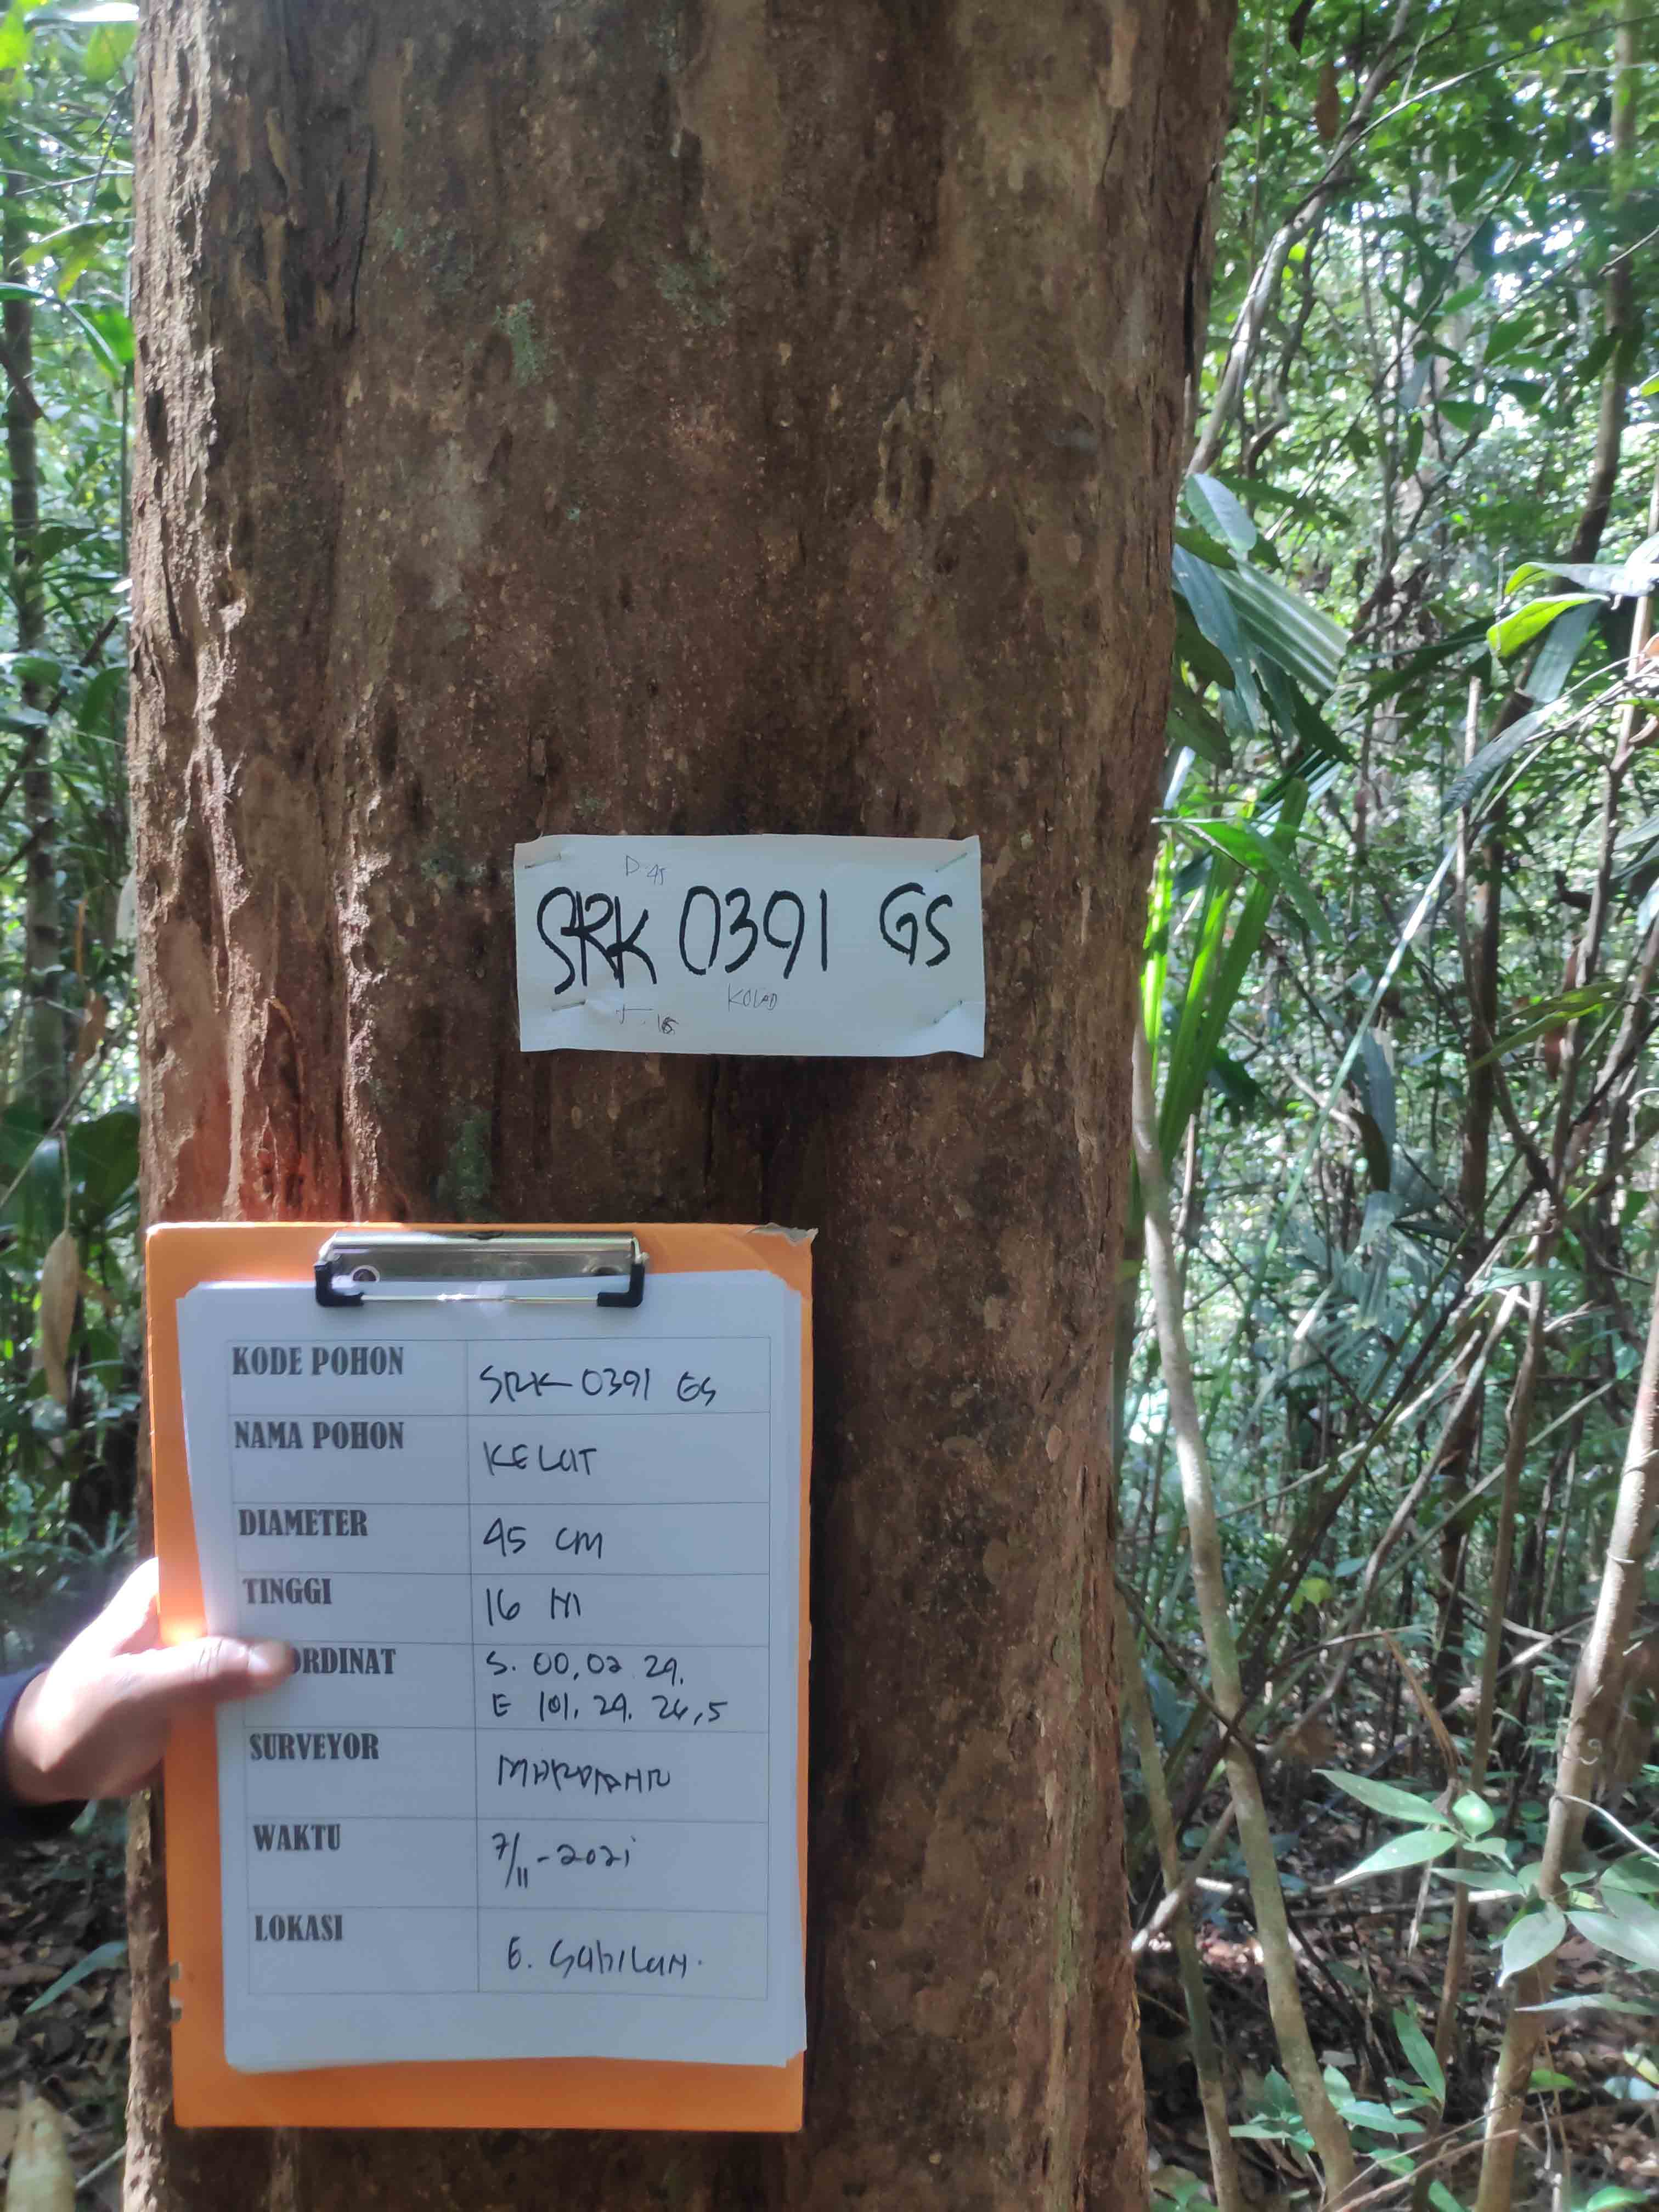 D 45
SRK 0391 GS
T. 16
KODE POHON SRK 0391 GS
NAMA POHON KELAT
DIAMETER 45 CM
TINGGI 16 M
ORDINAT S. 00,02 29,
E 101, 29. 26,5
SURVEYOR
WAKTU 7/11-2021
LOKASI G. SAHILAN.